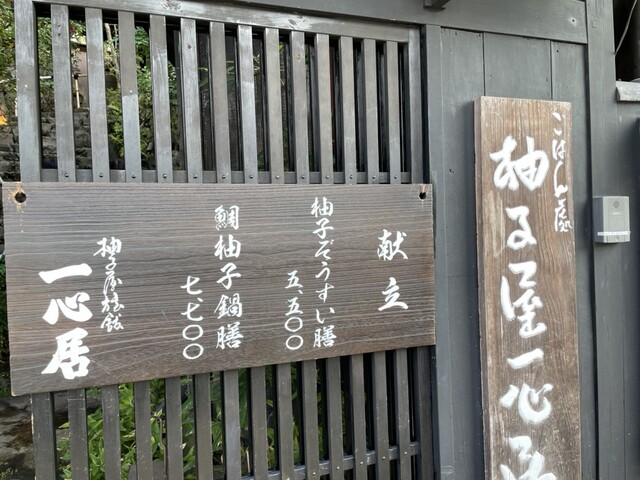 ごはん處
柚子屋一心居
献立
柚子ぞうすい膳
五、五〇〇
鯛柚子鍋膳
七、七〇〇
柚子屋旅館
一心居